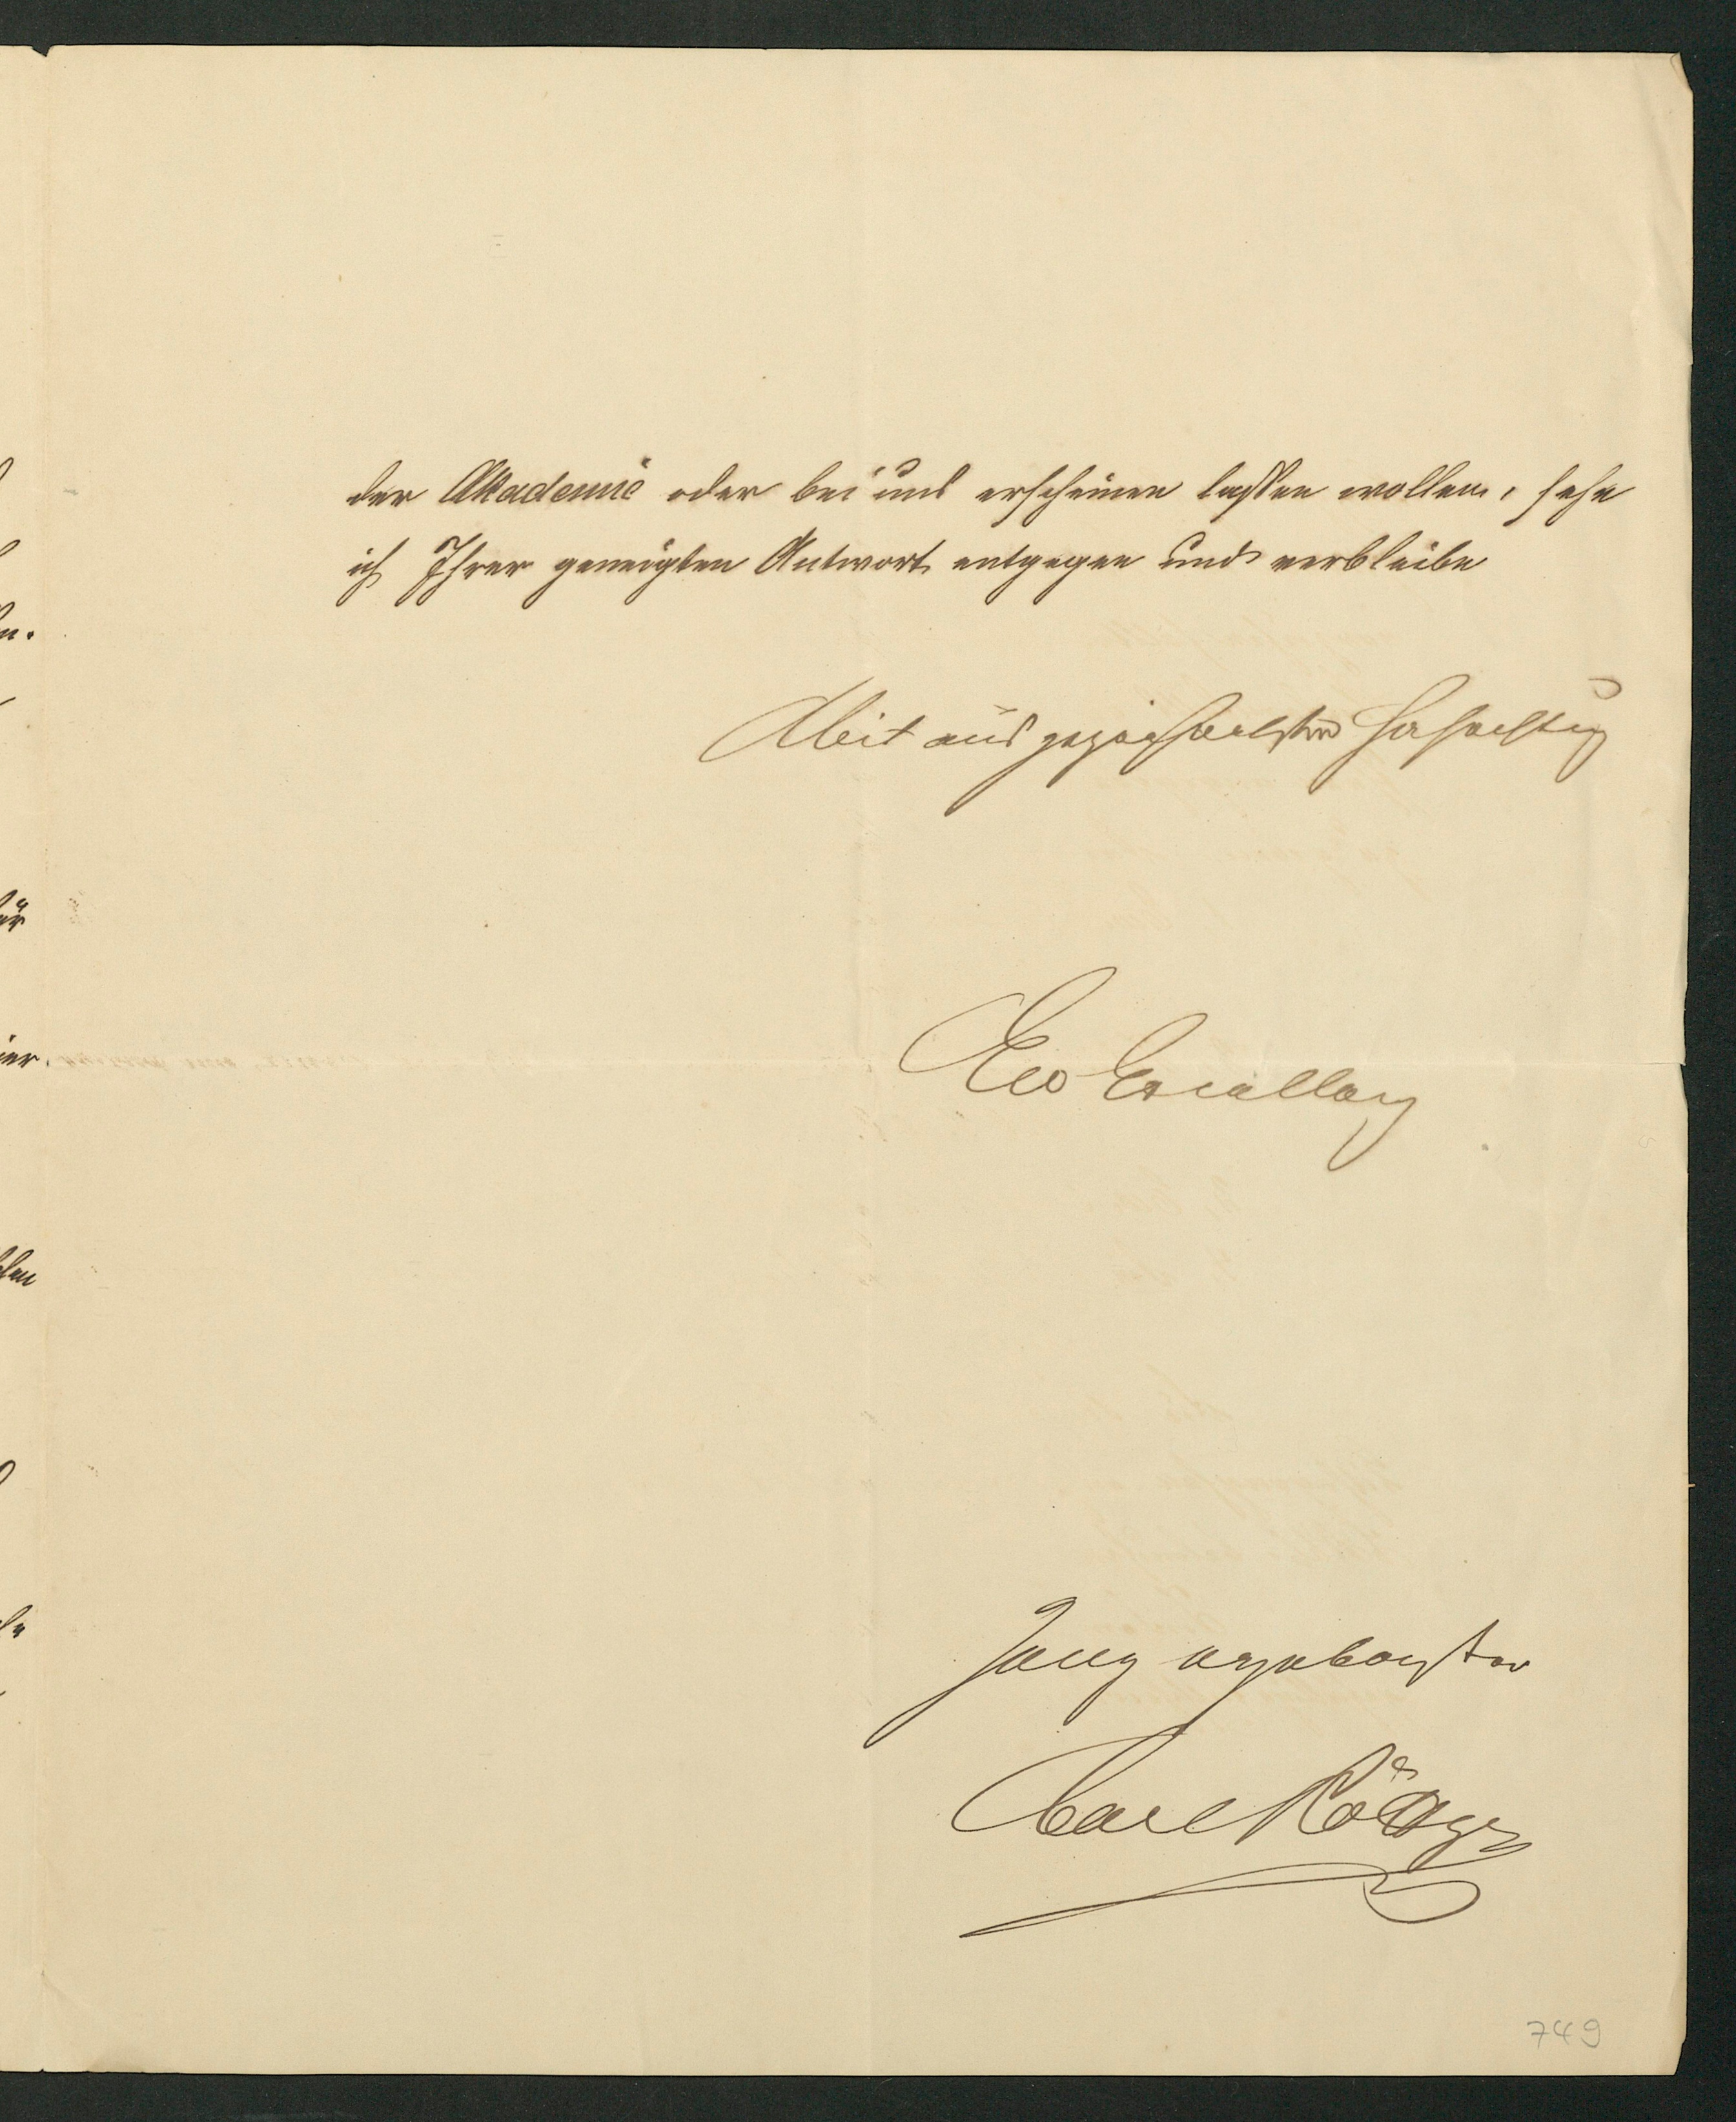 der Akademie oder bei uns erscheinen lassen wollen, sehe
ich Ihrer geneigten Antwort entgegen und verbleibe
Mit ausgezeichneter Hochachtung
Ew Excellenz
ganz ergebenster
Carl Röttger
749